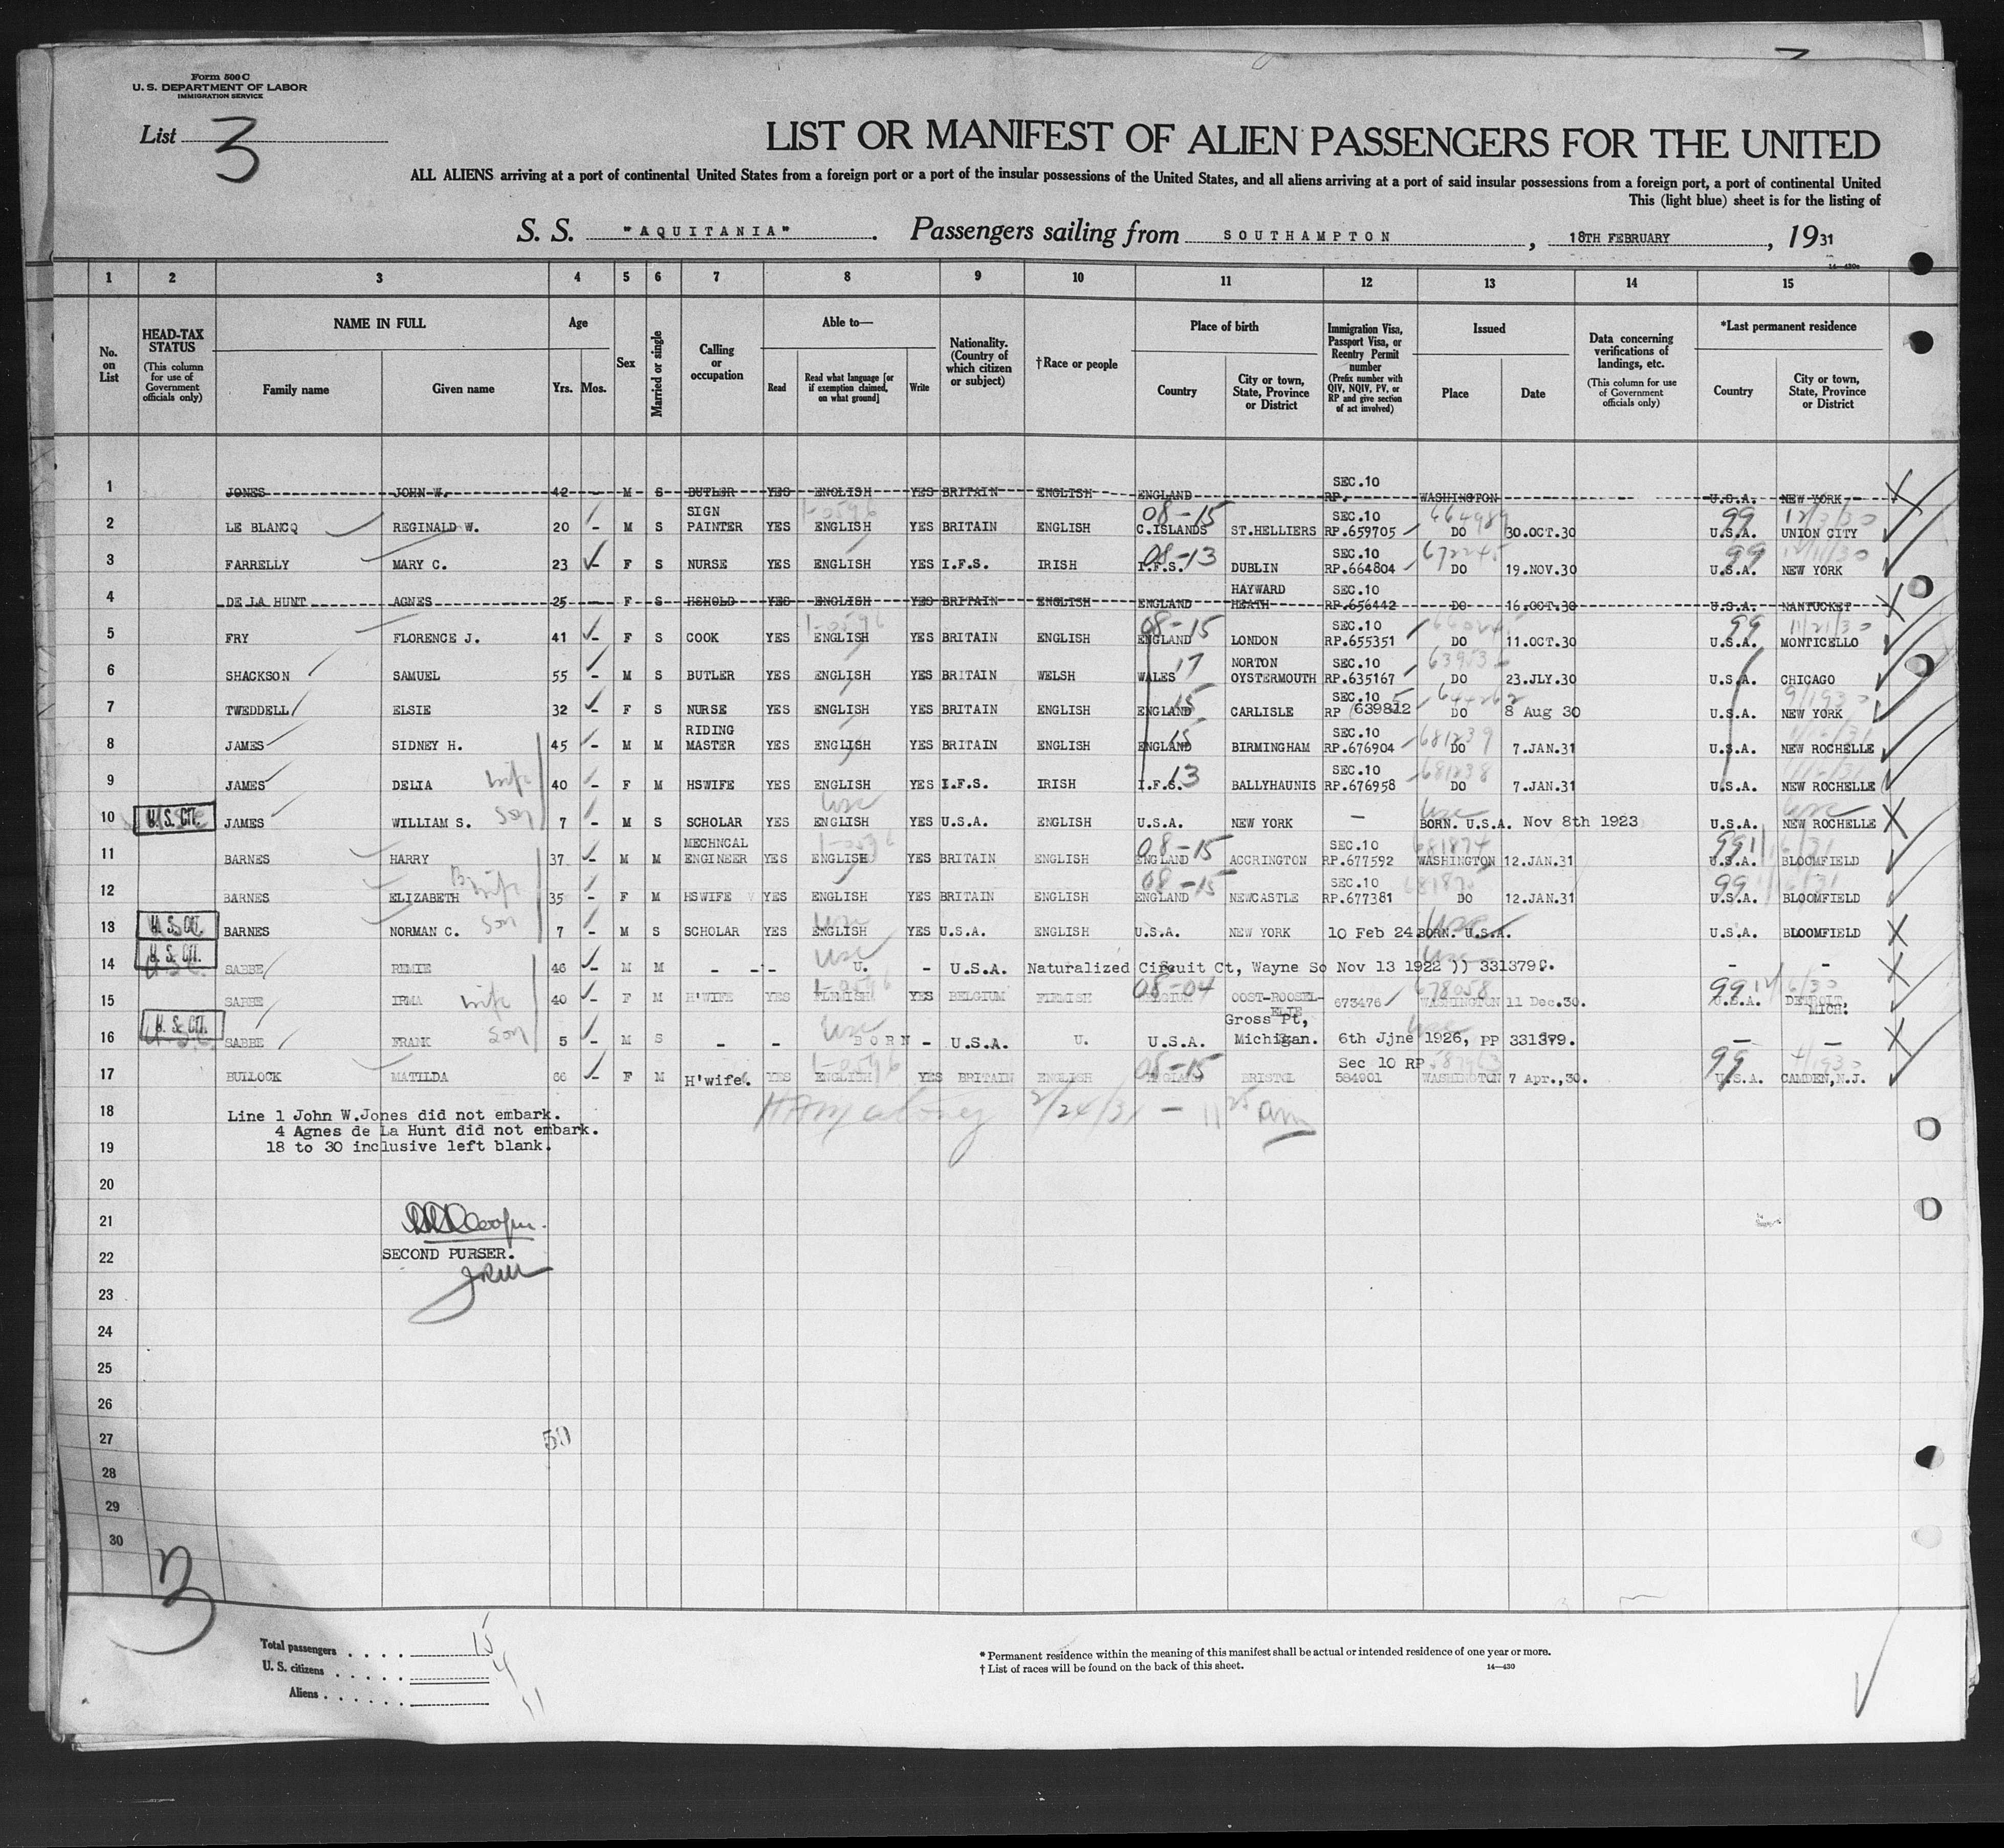 Form 500 C
U. S. DEPARTMENT OF LABOR
IMMIGRATION SERVICE
List 3
LIST OR MANIFEST OF ALIEN PASSENGERS FOR THE UNITED
ALL ALIENS arriving at a port of continental United States from a foreign port or a port of the insular possessions of the United States, and all aliens arriving at a port of said insular possessions from a foreign port, a port of continental United
This (light blue) sheet is for the listing of
S. S. "AQUITANIA". Passengers sailing from SOUTHAMPTON, 18TH FEBRUARY, 1931
1 2 3 4 5 6 7 8 9 10 11 12 13 14 15
No. on List
HEAD-TAX STATUS (This column for use of Government officials only)
NAME IN FULL Family name Given name
Age Yrs. Mos.
Sex
Married or single
Calling or occupation
Able to— Read Read what language [or if exemption claimed, on what ground] Write
Nationality. (Country of which citizen or subject)
†Race or people
Place of birth Country City or town, State, Province or District
Immigration Visa, Passport Visa, or Reentry Permit number (Prefix number with QIV, NQIV, PV, or RP and give section of act involved)
Issued Place Date
Data concerning verifications of landings, etc. (This column for use of Government officials only)
*Last permanent residence Country City or town, State, Province or District
1 JONES JOHN W. 42 - M S BUTLER YES ENGLISH YES BRITAIN ENGLISH ENGLAND SEC.10 RP. WASHINGTON U.S.A. NEW YORK
2 LE BLANCQ REGINALD W. 20 - M S SIGN PAINTER YES ENGLISH YES BRITAIN ENGLISH 08-15 C.ISLANDS ST.HELLIERS SEC.10 RP.659705 DO 30.OCT.30 99 U.S.A. UNION CITY
3 FARRELLY MARY C. 23 - F S NURSE YES ENGLISH YES I.F.S. IRISH 08-13 I.F.S. DUBLIN SEC.10 RP.664804 DO 19.NOV.30 99 U.S.A. NEW YORK
4 DE LA HUNT AGNES 25 - F S HSHOLD YES ENGLISH YES BRITAIN ENGLISH ENGLAND HAYWARD HEATH SEC.10 RP.656442 DO 16.OCT.30 U.S.A. NANTUCKET
5 FRY FLORENCE J. 41 - F S COOK YES ENGLISH YES BRITAIN ENGLISH 08-15 ENGLAND LONDON SEC.10 RP.655351 DO 11.OCT.30 99 11/21/30 U.S.A. MONTICELLO
6 SHACKSON SAMUEL 55 - M S BUTLER YES ENGLISH YES BRITAIN WELSH WALES 17 NORTON OYSTERMOUTH SEC.10 RP.635167 DO 23.JLY.30 U.S.A. CHICAGO
7 TWEDDELL ELSIE 32 - F S NURSE YES ENGLISH YES BRITAIN ENGLISH ENGLAND 15 CARLISLE SEC.10 RP 639812 DO 8 Aug 30 U.S.A. NEW YORK
8 JAMES SIDNEY H. 45 - M M RIDING MASTER YES ENGLISH YES BRITAIN ENGLISH ENGLAND 15 BIRMINGHAM SEC.10 RP.676904 681239 DO 7.JAN.31 U.S.A. NEW ROCHELLE
9 JAMES DELIA wife 40 - F M HSWIFE YES ENGLISH YES I.F.S. IRISH I.F.S. 13 BALLYHAUNIS SEC.10 RP.676958 681238 DO 7.JAN.31 U.S.A. NEW ROCHELLE
10 U. S. CIT. JAMES WILLIAM S. son 7 - M S SCHOLAR YES usc ENGLISH YES U.S.A. ENGLISH U.S.A. NEW YORK — usc BORN. U.S.A. Nov 8th 1923 usc U.S.A. NEW ROCHELLE
11 BARNES HARRY 37 - M M MECHNCAL ENGINEER YES ENGLISH YES BRITAIN ENGLISH 08-15 ENGLAND ACCRINGTON SEC.10 RP.677592 681874 WASHINGTON 12.JAN.31 99 U.S.A. BLOOMFIELD
12 BARNES ELIZABETH B wife 35 - F M HSWIFE YES ENGLISH YES BRITAIN ENGLISH 08-15 ENGLAND NEWCASTLE SEC.10 RP.677381 DO 12.JAN.31 99 U.S.A. BLOOMFIELD
13 U. S. CIT. BARNES NORMAN C. son 7 - M S SCHOLAR YES usc ENGLISH YES U.S.A. ENGLISH U.S.A. NEW YORK 10 Feb 24 usc BORN. U.S.A. U.S.A. BLOOMFIELD
14 U. S. CIT. SABBE REMIE 46 - M M - - - usc U. - U.S.A. Naturalized Circuit Ct, Wayne So Nov 13 1922 )) 331379. - -
15 SABBE IRMA wife 40 - F M H'WIFE YES FLEMISH YES BELGIUM FLEMISH 08-04 BELGIUM OOST-ROOSEL-ELIE 673476 678058 WASHINGTON 11 Dec.30. 99 U.S.A. DETROIT, MICH.
16 U. S. CIT. SABBE FRANK son 5 - M S - - usc BORN - U.S.A. U. U.S.A. Gross Pt, Michigan. 6th Jjne 1926, PP 331379. usc - -
17 BULLOCK MATILDA 66 - F M H'wife. YES ENGLISH YES BRITAIN ENGLISH 08-15 ENGLAND BRISTOL Sec 10 RP 584901 WASHINGTON 7 Apr.,30. 99 U.S.A. CAMDEN, N.J.
18 Line 1 John W.Jones did not embark. 2/24/31 - 11 25 am
4 Agnes de La Hunt did not embark.
19 18 to 30 inclusive left blank.
20
21
22 SECOND PURSER.
23
24
25
26
27
28
29
30
3
Total passengers . . . . 15
U. S. citizens . . . . . 4
Aliens . . . . . . 11
* Permanent residence within the meaning of this manifest shall be actual or intended residence of one year or more.
† List of races will be found on the back of this sheet.
14—430